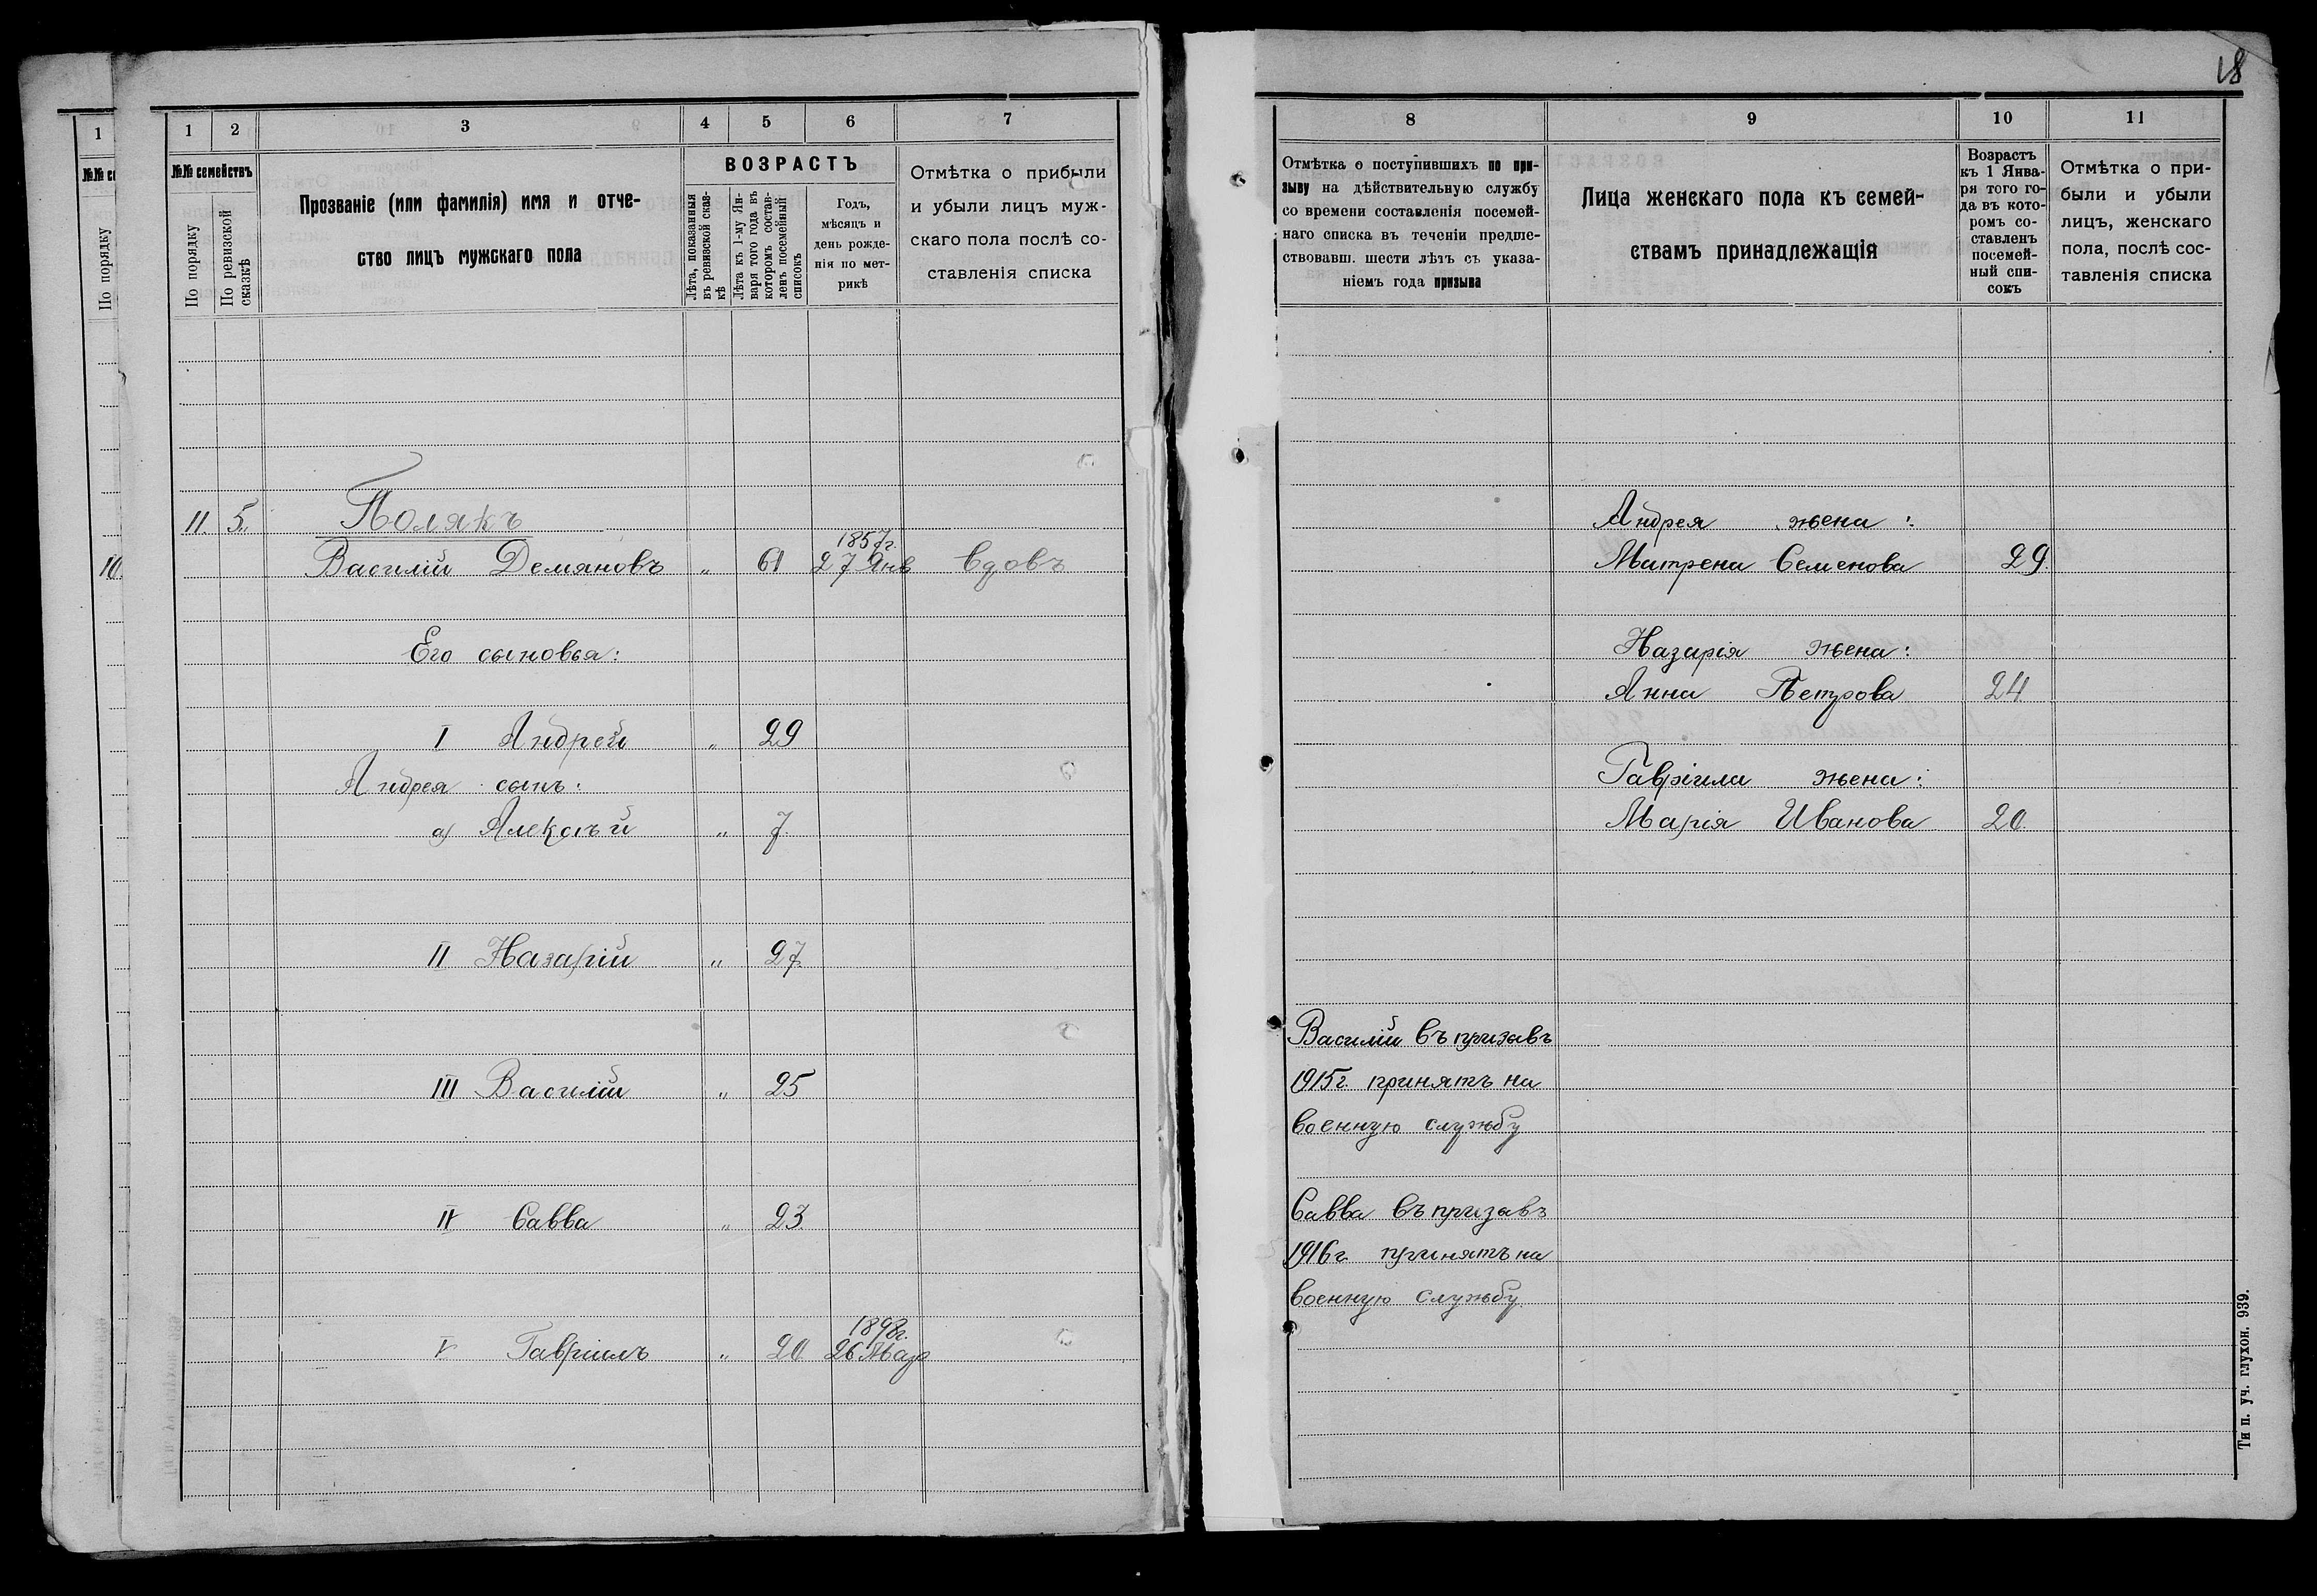 18
1
№№ се
По порядку
10.
1 2 3 4 5 6 7
№№ семействъ
По порядку
По ревизской сказкѣ
Прозваніе (или фамилія) имя и отче-
ство лицъ мужскаго пола
ВОЗРАСТЪ
Лѣта, показанныя
въ ревизской сказ-
кѣ
Лѣта къ 1-му Ян-
варя того года въ
которомъ состав-
ленъ посемейный
списокъ
Годъ,
мѣсяцъ и
день рожде-
нія по мет-
рикѣ
Отмѣтка о прибыли
и убыли лицъ муж-
скаго пола послѣ со-
ставленія списка
11. 5. Полякъ
1857г.
Василій Демяновъ " 61 27 Янв вдовъ
Его сыновья:
I Андрей " 29
Андрея сынъ:
а) Алексѣй " 7.
II Назарій " 27.
III Василій " 25
IV Савва " 23
1898г.
V Гавріилъ " 20 26 Мар
8 9 10 11
Отмѣтка о поступившихъ по при-
зыву на дѣйствительную службу
со времени составленія посемей-
наго списка въ теченіи предше-
ствовавш. шести лѣтъ съ указа-
ніемъ года призыва
Лица женскаго пола къ семей-
ствамъ принадлежащія
Возрастъ
къ 1 Янва-
ря того го-
да въ кото-
ромъ со-
ставленъ
посемей-
ный спи-
сокъ
Отмѣтка о при-
были и убыли
лицъ, женскаго
пола, послѣ сос-
тавленія списка
Андрея жена:
Матрена Семенова 29.
Назарія жена:
Анна Петрова 24
Гавріила жена:
Марія Иванова 20.
Василій въ призывъ
1915г. принятъ на
военную службу
Савва въ призывъ
1916г принятъ на
военную службу
Тип. уч. глухон. 939.